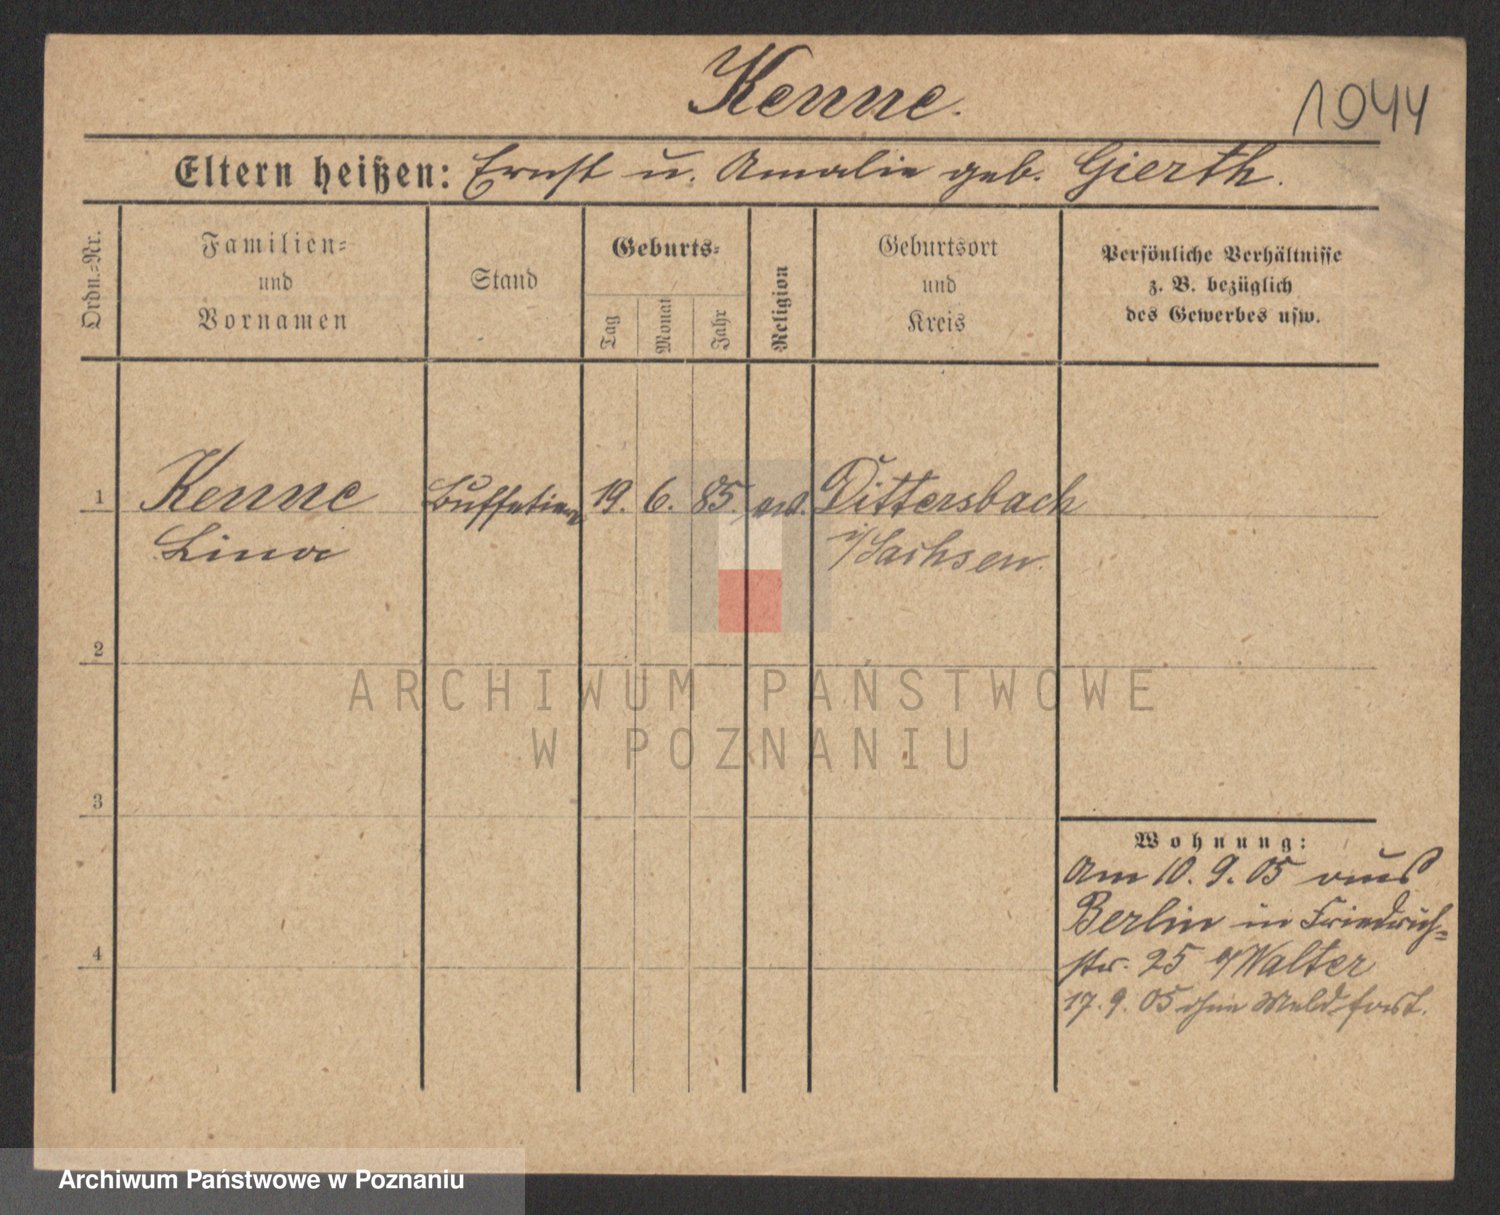 Kenne.
1944
Eltern heißen: Ernst u. Amalie geb. Gierth.
Ordn.-Nr.
Familien-
und
Vornamen
Stand
Geburts-
Tag
Monat
Jahr
Religion
Geburtsort
und
Kreis
Persönliche Verhältnisse
z. B. bezüglich
des Gewerbes usw.
1 Kenne Buffetiere 19. 6. 85. ev. Dittersbach
Lina i/Sachsen.
2
ARCHIWUM PAŃSTWOWE
W POZNANIU
3
Wohnung:
Am 10. 9. 05 aus
Berlin in Friedrich-
str. 25 b/Walter
4
17. 9. 05 ohne Meld. fort.
Archiwum Państwowe w Poznaniu